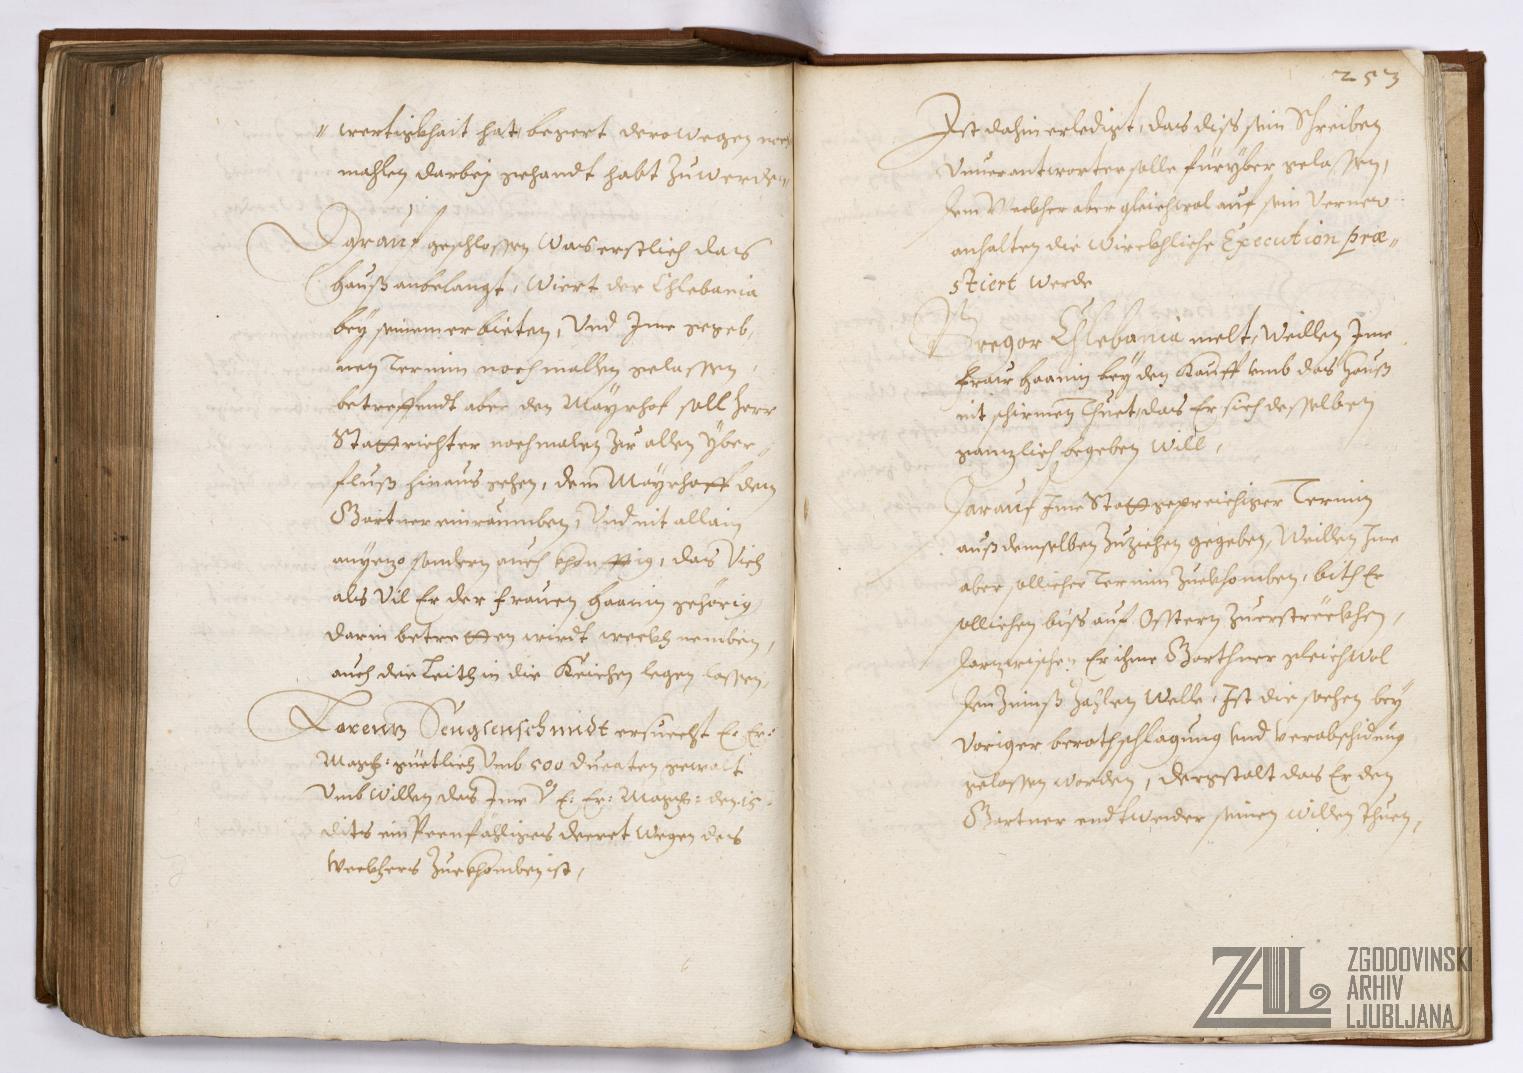 wertigkhait hat begert derowegen noch
mahlen darbey gehandt habt zu werden
Darauf geschlossen was erstlich das
hauß anbelangt, wiert der Chlebania
bey seinem erbieten, und Ime gegeb,,
nen Termin nochmallen gelassen,
betreffendt aber den Mayrhof soll herr
Stattrichter nochmalen zu allen yber,,
fluß hinaus gehen, dem Mayrhoff dem
Gartner einraumben, Und nit allain
anyezo sondern auch khonfftig, das Vich
als vil Er der frauen haanin gehörig,
darin betretten wirdt weckh nemben,
auch die Leith in die Keichen legen lassen,
Lorenz Sengsenschmidt ersuecht E: Er:
Mag: güetlich umb 500 ducaten
umb willen das Ime E: Er: Mag: den 15
dits ein Peenfähliges decret wegen des
Weckhers zuekhomben ist,
253
Ist dahin erledigt, das diss sein Schreiben
Unverantworter solle füryber gelassen,
dem Weckher aber gleichwol auf sein verner
anhalten die wirckhliche Execution præ,,
stiert werde
Gregor Chlebania melt, Weillen Ime
frau haanin bey den Kauff umb das hauß
nit schirmen thuet, das Er sich desselben
gannzlich begeben will,
Darauf Ime Termin
auß demselben zuziehen gegeben, Weillen Ime
aber sollicher Termin zuekhomben, bith Er
sollichen biss auf Osstern zuerstreckhen,
Er ihme Garthner gleichwol
den Zinnß zahlen welle, Ist die sachen bey
voriger berathschlagung und verabschidung
gelassen worden, dergstalt das Er den
Gartner endtweder seinen willen thuen,
ZAL
ZGODOVINSKI
ARHIV
LJUBLJANA